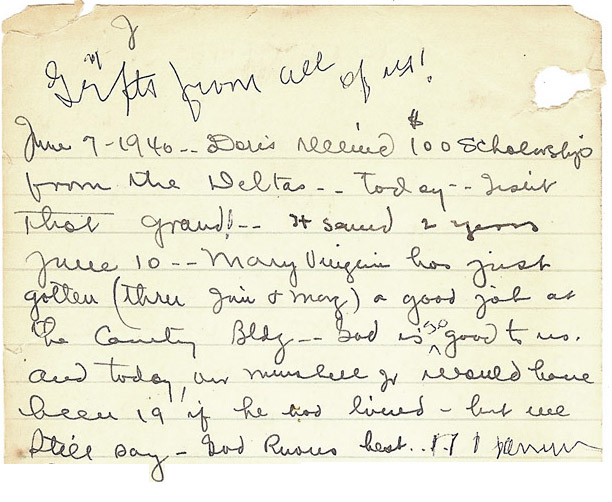 Gifts from all of us!
June 7-1940-- Doris received $100 Scholarship
from the Deltas -- today -- Isnt
that grand!-- It saved 2 years
June 10 -- Mary Virginia has just
gotten (thru Jim & Mag) a good job at
the County Bldg -- God is so good to us.
and today, our Munsell Jr would have
been 19 if he had lived - but we
still say - God knows best..